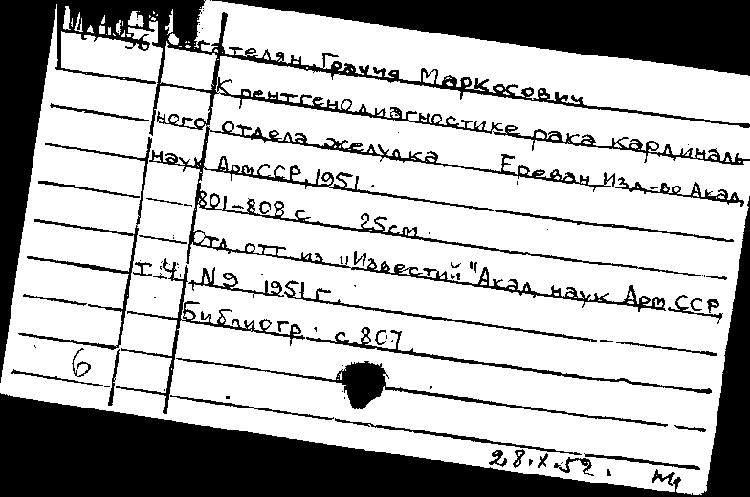 56
Грачия Маркосович
К рентгенодиагностике рака кардиналь
ного отдела желудка Ереван, Изд-во Акад.
наук Арм.ССР, 1951.
801-808 с. 25см.
Отд. отт. из "Известий" Акад. наук Арм. ССР,
т. 4, N9, 1951 г.
Библиогр.: с. 807.
6
28.X.52.